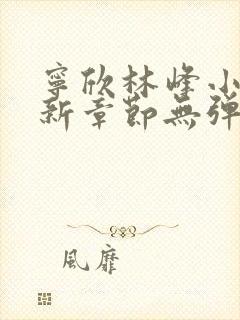 寧欣林峰小
新章節無彈
風靡